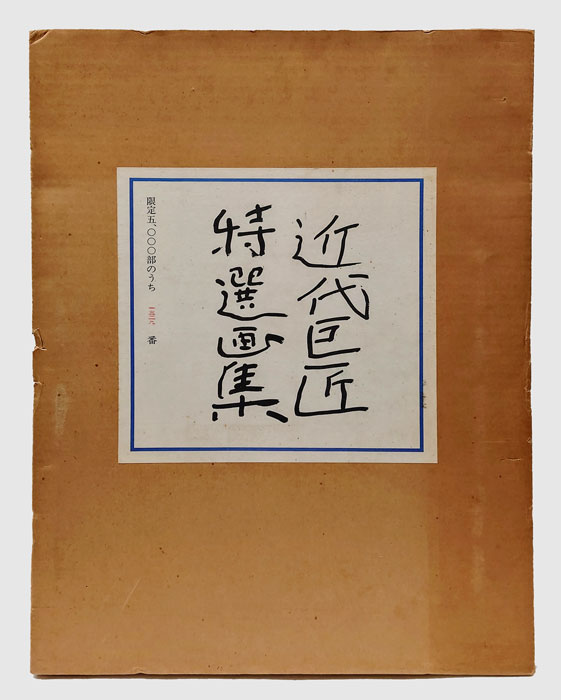 近代巨匠
特選画集
限定五、〇〇〇部のうち
番